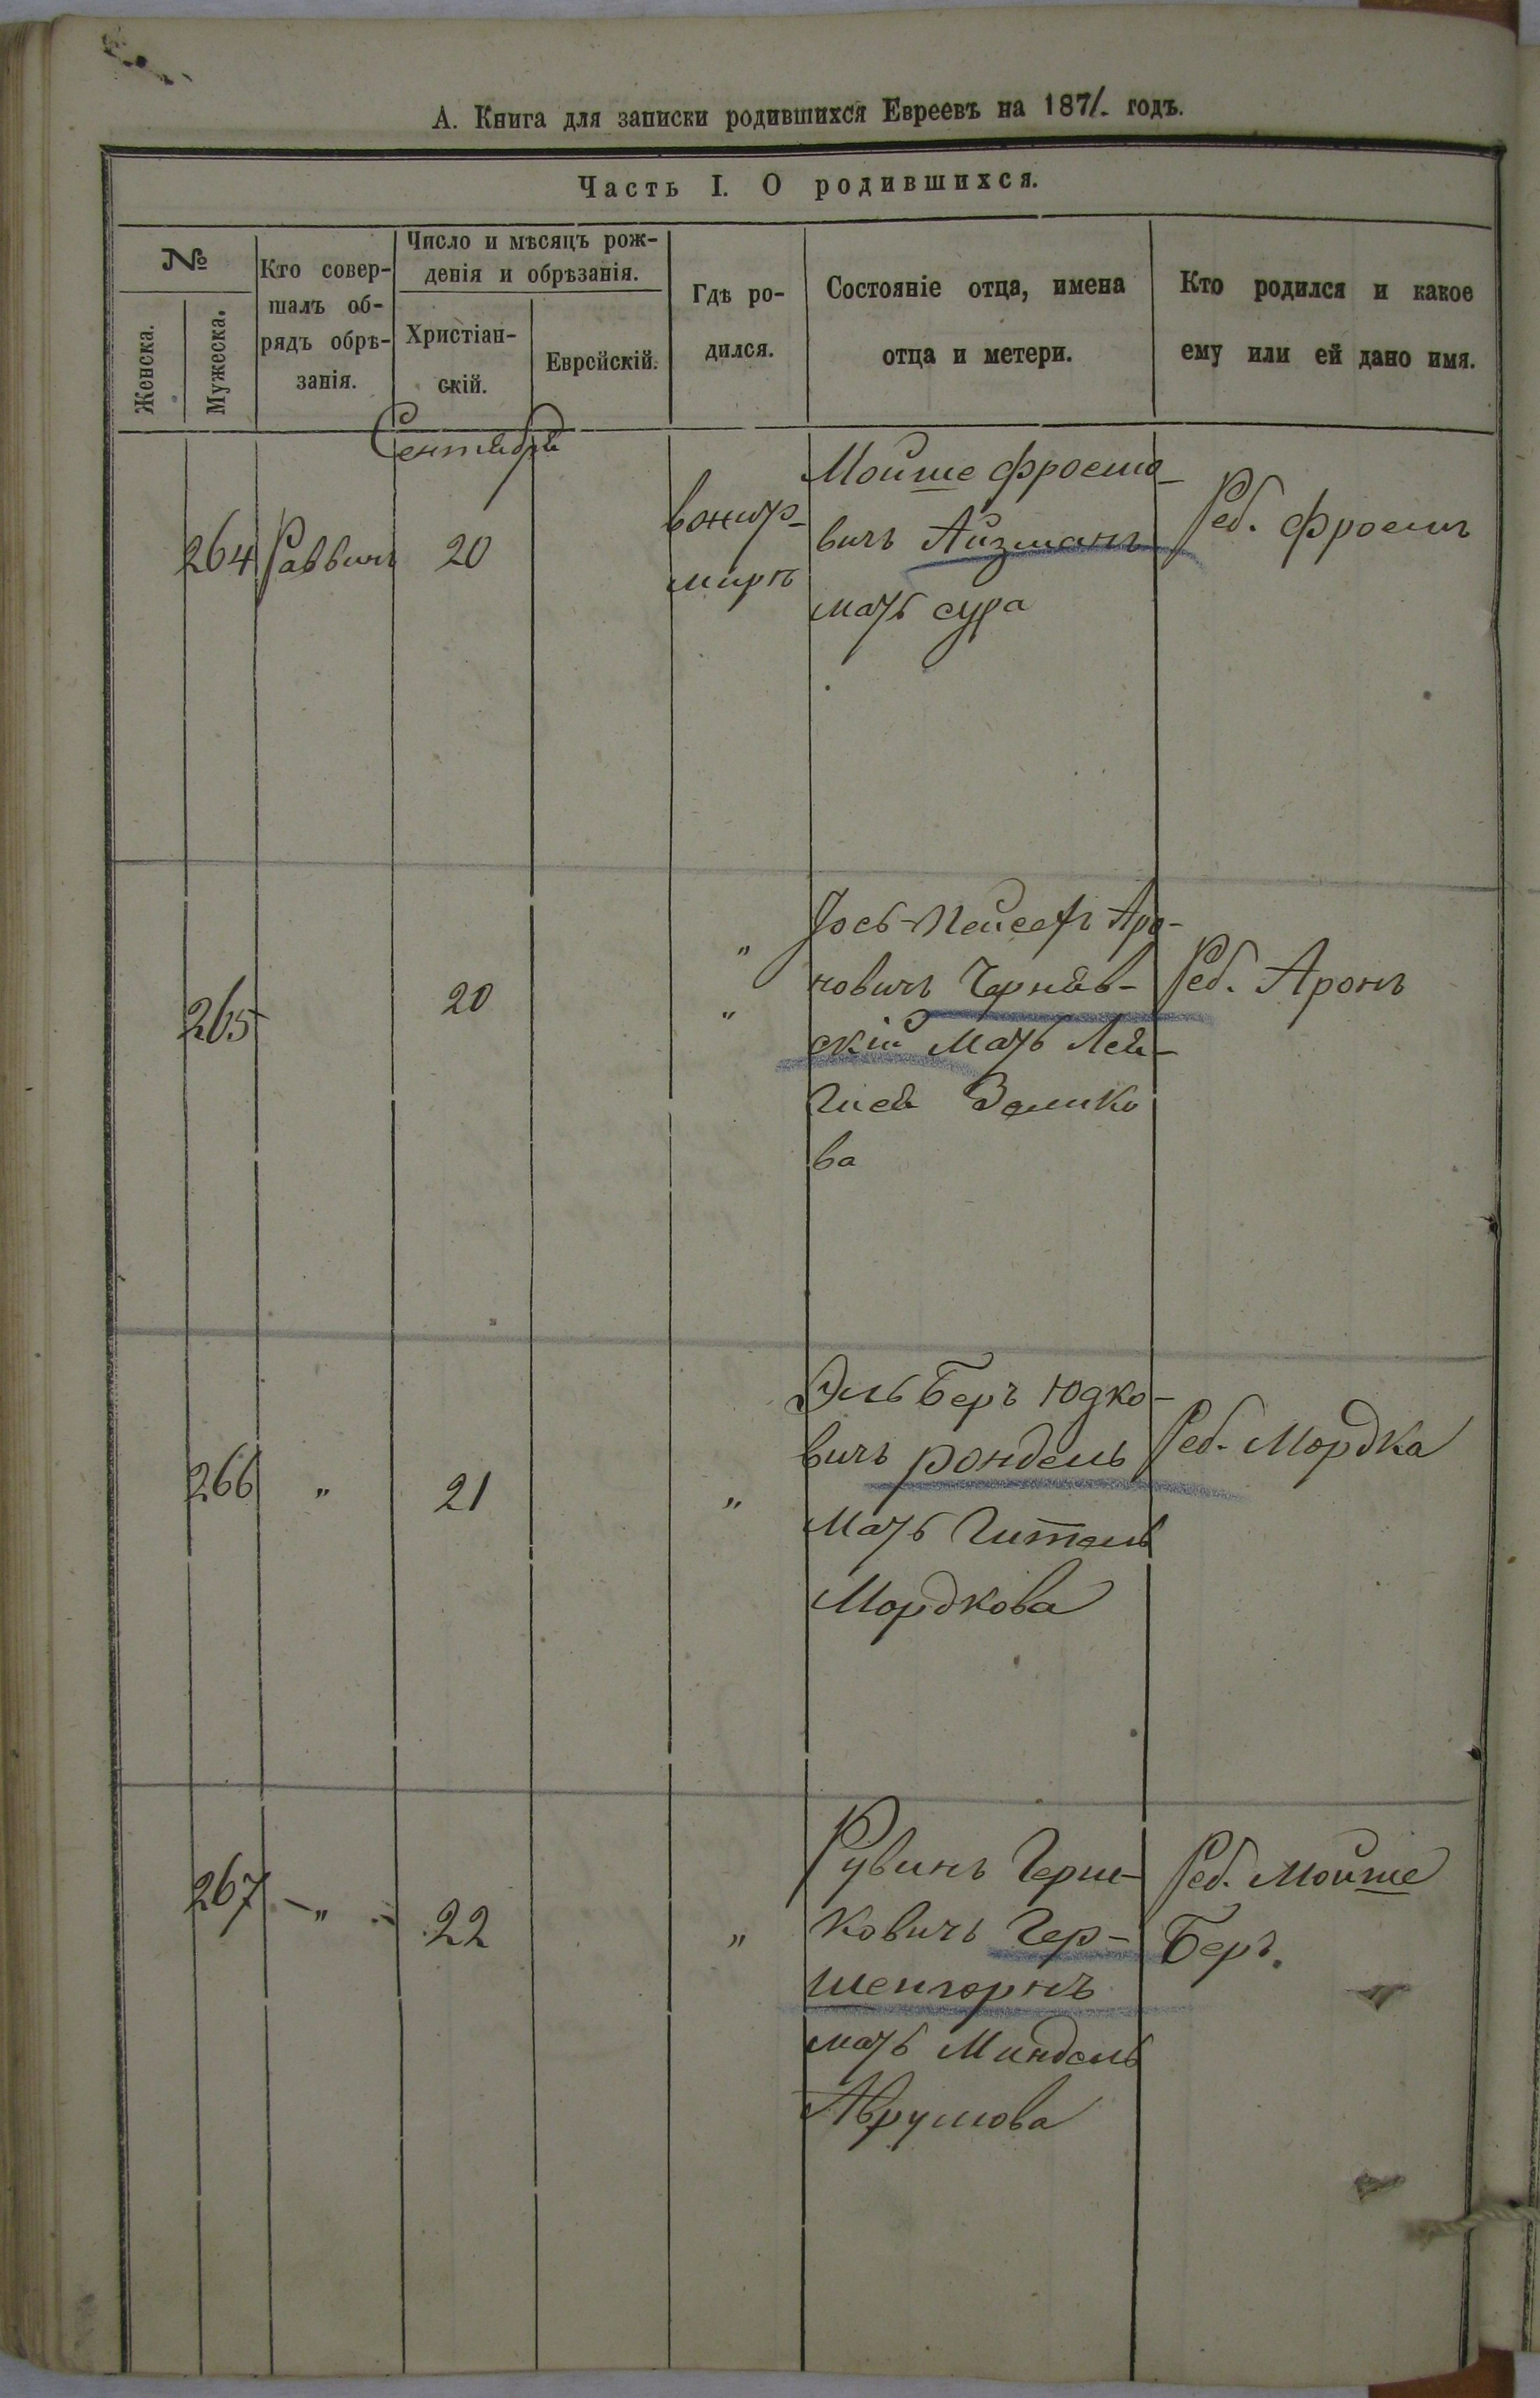 А. Книга для записки родившихся Евреевъ на 1871. годъ.
Часть I. О родившихся.
№
Женска.
Мужеска.
Кто совер-
шалъ об-
рядъ обрѣ-
занія.
Число и мѣсяцъ рож-
денія и обрѣзанія.
Христіан-
скій.
Еврейскій.
Гдѣ ро-
дился.
Состояніе отца, имена
отца и метери.
Кто родился и какое
ему или ей дано имя.
Сентября
264 Раввинъ 20
вжит-
мирѣ
Мойше Фроемо-
вичъ Айзманъ
мать сура
Реб. Фроемъ
265 20
"
"
Іось-Пейсехъ Аро-
новичъ Черняв-
скій мать Лея-
Гися Зелико
ва
Реб. Аронъ
266 " 21 "
Эль Беръ Юдко-
вичъ рондель
мать Гитель
Мордкова
Реб. Мордка
267 - " - 22 "
Рувинъ Герш-
ковичъ Гер-
шенгорнъ
мать Миндель
Аврумова
Реб. Мойше
Беръ.